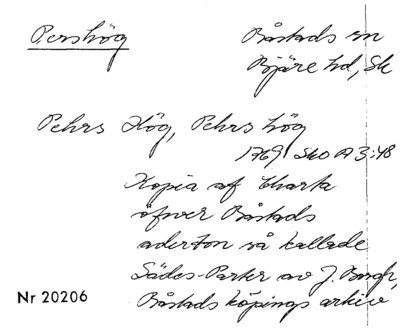 Pershög
Båstads sn
Bjäre hd, Sk
Pehrs Hög, Pehrs hög
1769 Sko A 3:48
Kopia af Charta
öfwer Båstads
aderton så kallade
Sädes-Parker av J. Bergh,
Båstads köpings arkiv
Nr 20206